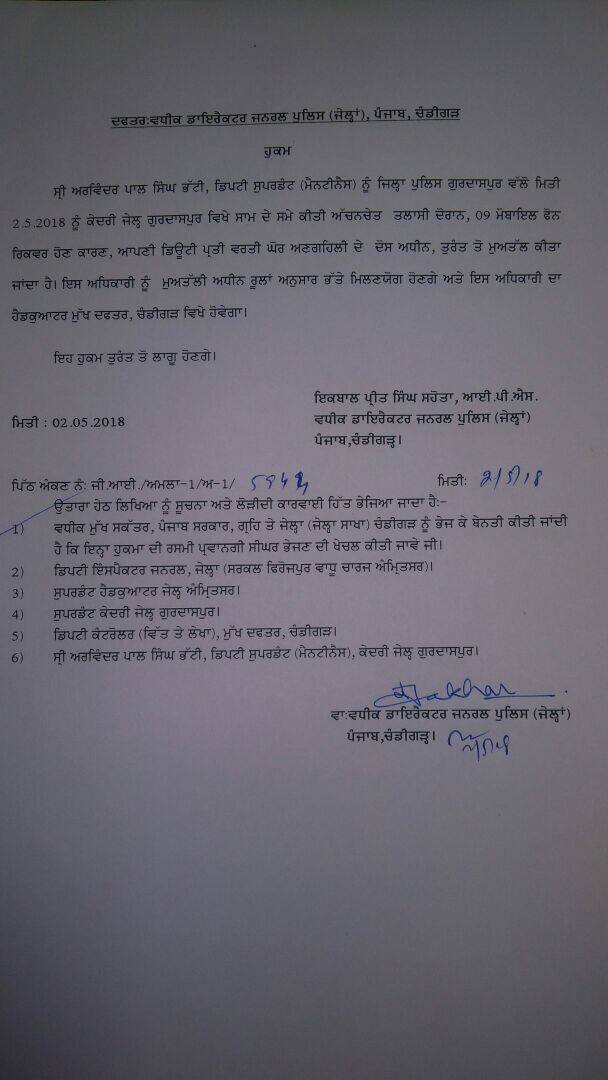 ਦਫਤਰ:ਵਧੀਕ ਡਾਇਰੈਕਟਰ ਜਨਰਲ ਪੁਲਿਸ (ਜੇਲ੍ਹਾਂ), ਪੰਜਾਬ, ਚੰਡੀਗੜ੍ਹ
ਹੁਕਮ
ਸ੍ਰੀ ਅਰਵਿੰਦਰ ਪਾਲ ਸਿੰਘ ਭੱਟੀ, ਡਿਪਟੀ ਸੁਪਰਡੰਟ (ਮੈਨਟੀਨੈਸ) ਨੂੰ ਜਿਲ੍ਹਾ ਪੁਲਿਸ ਗੁਰਦਾਸਪੁਰ ਵੱਲੋ ਮਿਤੀ
2.5.2018 ਨੂੰ ਕੇਦਰੀ ਜੇਲ੍ਹ ਗੁਰਦਾਸਪੁਰ ਵਿਖੇ ਸਾਮ ਦੇ ਸਮੇ ਕੀਤੀ ਅੱਚਨਚੇਤ ਤਲਾਸੀ ਦੋਰਾਨ, 09 ਮੋਬਾਇਲ ਫੋਨ
ਰਿਕਵਰ ਹੋਣ ਕਾਰਣ, ਆਪਣੀ ਡਿਊਟੀ ਪ੍ਰਤੀ ਵਰਤੀ ਘੋਰ ਅਣਗਹਿਲੀ ਦੇ ਦੋਸ ਅਧੀਨ, ਤੁਰੰਤ ਤੋ ਮੁਅਤੱਲ ਕੀਤਾ
ਜਾਂਦਾ ਹੈ। ਇਸ ਅਧਿਕਾਰੀ ਨੂੰ ਮੁਅਤੱਲੀ ਅਧੀਨ ਰੂਲਾਂ ਅਨੁਸਾਰ ਭੱਤੇ ਮਿਲਣਯੋਗ ਹੋਣਗੇ ਅਤੇ ਇਸ ਅਧਿਕਾਰੀ ਦਾ
ਹੈਡਕੁਆਟਰ ਮੁੱਖ ਦਫਤਰ, ਚੰਡੀਗੜ ਵਿਖੇ ਹੋਵੇਗਾ।
ਇਹ ਹੁਕਮ ਤੁਰੰਤ ਤੋ ਲਾਗੂ ਹੋਣਗੇ।
ਇਕਬਾਲ ਪ੍ਰੀਤ ਸਿੰਘ ਸਹੋਤਾ, ਆਈ.ਪੀ.ਐਸ.
ਮਿਤੀ : 02.05.2018 ਵਧੀਕ ਡਾਇਰੈਕਟਰ ਜਨਰਲ ਪੁਲਿਸ (ਜੇਲ੍ਹਾਂ)
ਪੰਜਾਬ,ਚੰਡੀਗੜ੍ਹ।
ਪਿੱਠ ਅੰਕਣ ਨੰ: ਜੀ.ਆਈ./ਅਮਲਾ-1/ਅ-1/ ਮਿਤੀ: 2/5/18
ਉਤਾਰਾ ਹੇਠ ਲਿਖਿਆ ਨੂੰ ਸੂਚਨਾ ਅਤੇ ਲੋੜੀਦੀ ਕਾਰਵਾਈ ਹਿੱਤ ਭੇਜਿਆ ਜਾਦਾ ਹੈ:-
1) ਵਧੀਕ ਮੁੱਖ ਸਕੱਤਰ, ਪੰਜਾਬ ਸਰਕਾਰ, ਗ੍ਰਹਿ ਤੇ ਜੇਲ੍ਹਾ (ਜੇਲ੍ਹਾ ਸਾਖਾ) ਚੰਡੀਗੜ ਨੂੰ ਭੇਜ ਕੇ ਬੇਨਤੀ ਕੀਤੀ ਜਾਂਦੀ
ਹੈ ਕਿ ਇਨ੍ਹਾ ਹੁਕਮਾ ਦੀ ਰਸਮੀ ਪ੍ਰਵਾਨਗੀ ਸੀਘਰ ਭੇਜਣ ਦੀ ਖੇਚਲ ਕੀਤੀ ਜਾਵੇ ਜੀ।
2) ਡਿਪਟੀ ਇੰਸਪੈਕਟਰ ਜਨਰਲ, ਜੇਲ੍ਹਾ (ਸਰਕਲ ਫਿਰੋਜਪੁਰ ਵਾਧੂ ਚਾਰਜ ਅੰਮ੍ਰਿਤਸਰ)।
3) ਸੁਪਰਡੰਟ ਹੈਡਕੁਆਟਰ ਜੇਲ੍ਹ ਅੰਮ੍ਰਿਤਸਰ।
4) ਸੁਪਰਡੰਟ ਕੇਦਰੀ ਜੇਲ੍ਹ ਗੁਰਦਾਸਪੁਰ।
5) ਡਿਪਟੀ ਕੰਟਰੋਲਰ (ਵਿੱਤ ਤੇ ਲੇਖਾ), ਮੁੱਖ ਦਫਤਰ, ਚੰਡੀਗੜ੍ਹ।
6) ਸ੍ਰੀ ਅਰਵਿੰਦਰ ਪਾਲ ਸਿੰਘ ਭੱਟੀ, ਡਿਪਟੀ ਸੁਪਰਡੰਟ (ਮੈਨਟੀਨੈਸ), ਕੇਦਰੀ ਜੇਲ੍ਹ ਗੁਰਦਾਸਪੁਰ।
ਵਾ:ਵਧੀਕ ਡਾਇਰੈਕਟਰ ਜਨਰਲ ਪੁਲਿਸ (ਜੇਲ੍ਹਾਂ)
ਪੰਜਾਬ,ਚੰਡੀਗੜ੍ਹ।